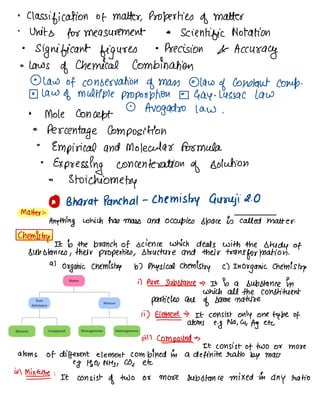 • Classification of matter, Properties of matter
• Units for measurement • Scientific Notation
• Significant figures • Precision & Accuracy
• Laws of Chemical Combination
⊙ Law of conservation of mass ⊙ law of Constant comp.
⊡ law of multiple proporption ⊡ Gay-Lussac Law
⊙ Avogadro law.
• Mole Concept
• Percentage Composition
• Empirical and Molecular formula
• Expressing concentration of solution
• Stoichiometry
Bharat Panchal - Chemistry Guruji 2.0
Matter:-
Anything which has mass and occupies space is called matter
Chemistry
It is the branch of science which deals with the study of
substances, their properties, structure and their transformation.
a) organic Chemistry b) Physical Chemistry c) Inorganic Chemistry
i) Pure Substance → It is a substance in
which all the constituent
particles are of same nature
ii) Element → It consist only one type of
atoms eg Na, Cu, Ag etc
iii) Compound →
It consist of two or more
atoms of different element combined in a definite ratio by mass
eg H2O, NH3, CO2 etc
iv) Mixture: It consist of two or more substance mixed in any ratio
Matter
Pure Substance
Mixture
Element
Compound
Homogeneous
Heterogeneous